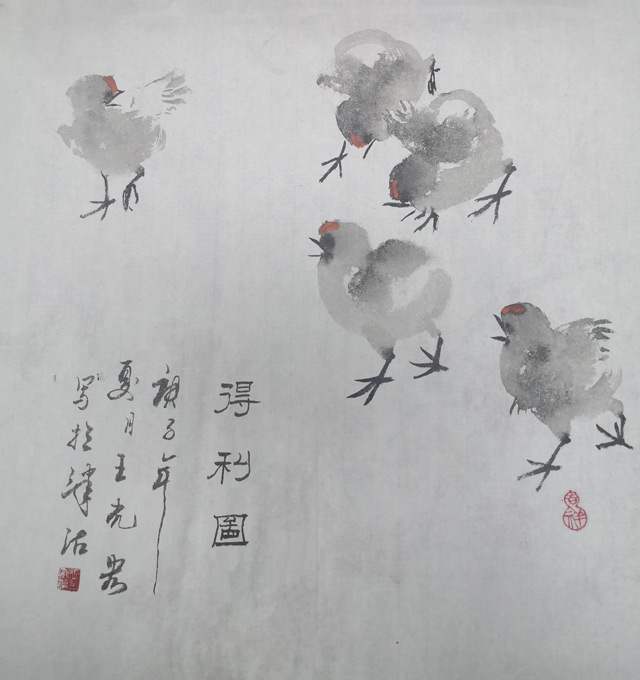 得利圖
庚子年
夏月王光
写於津沽